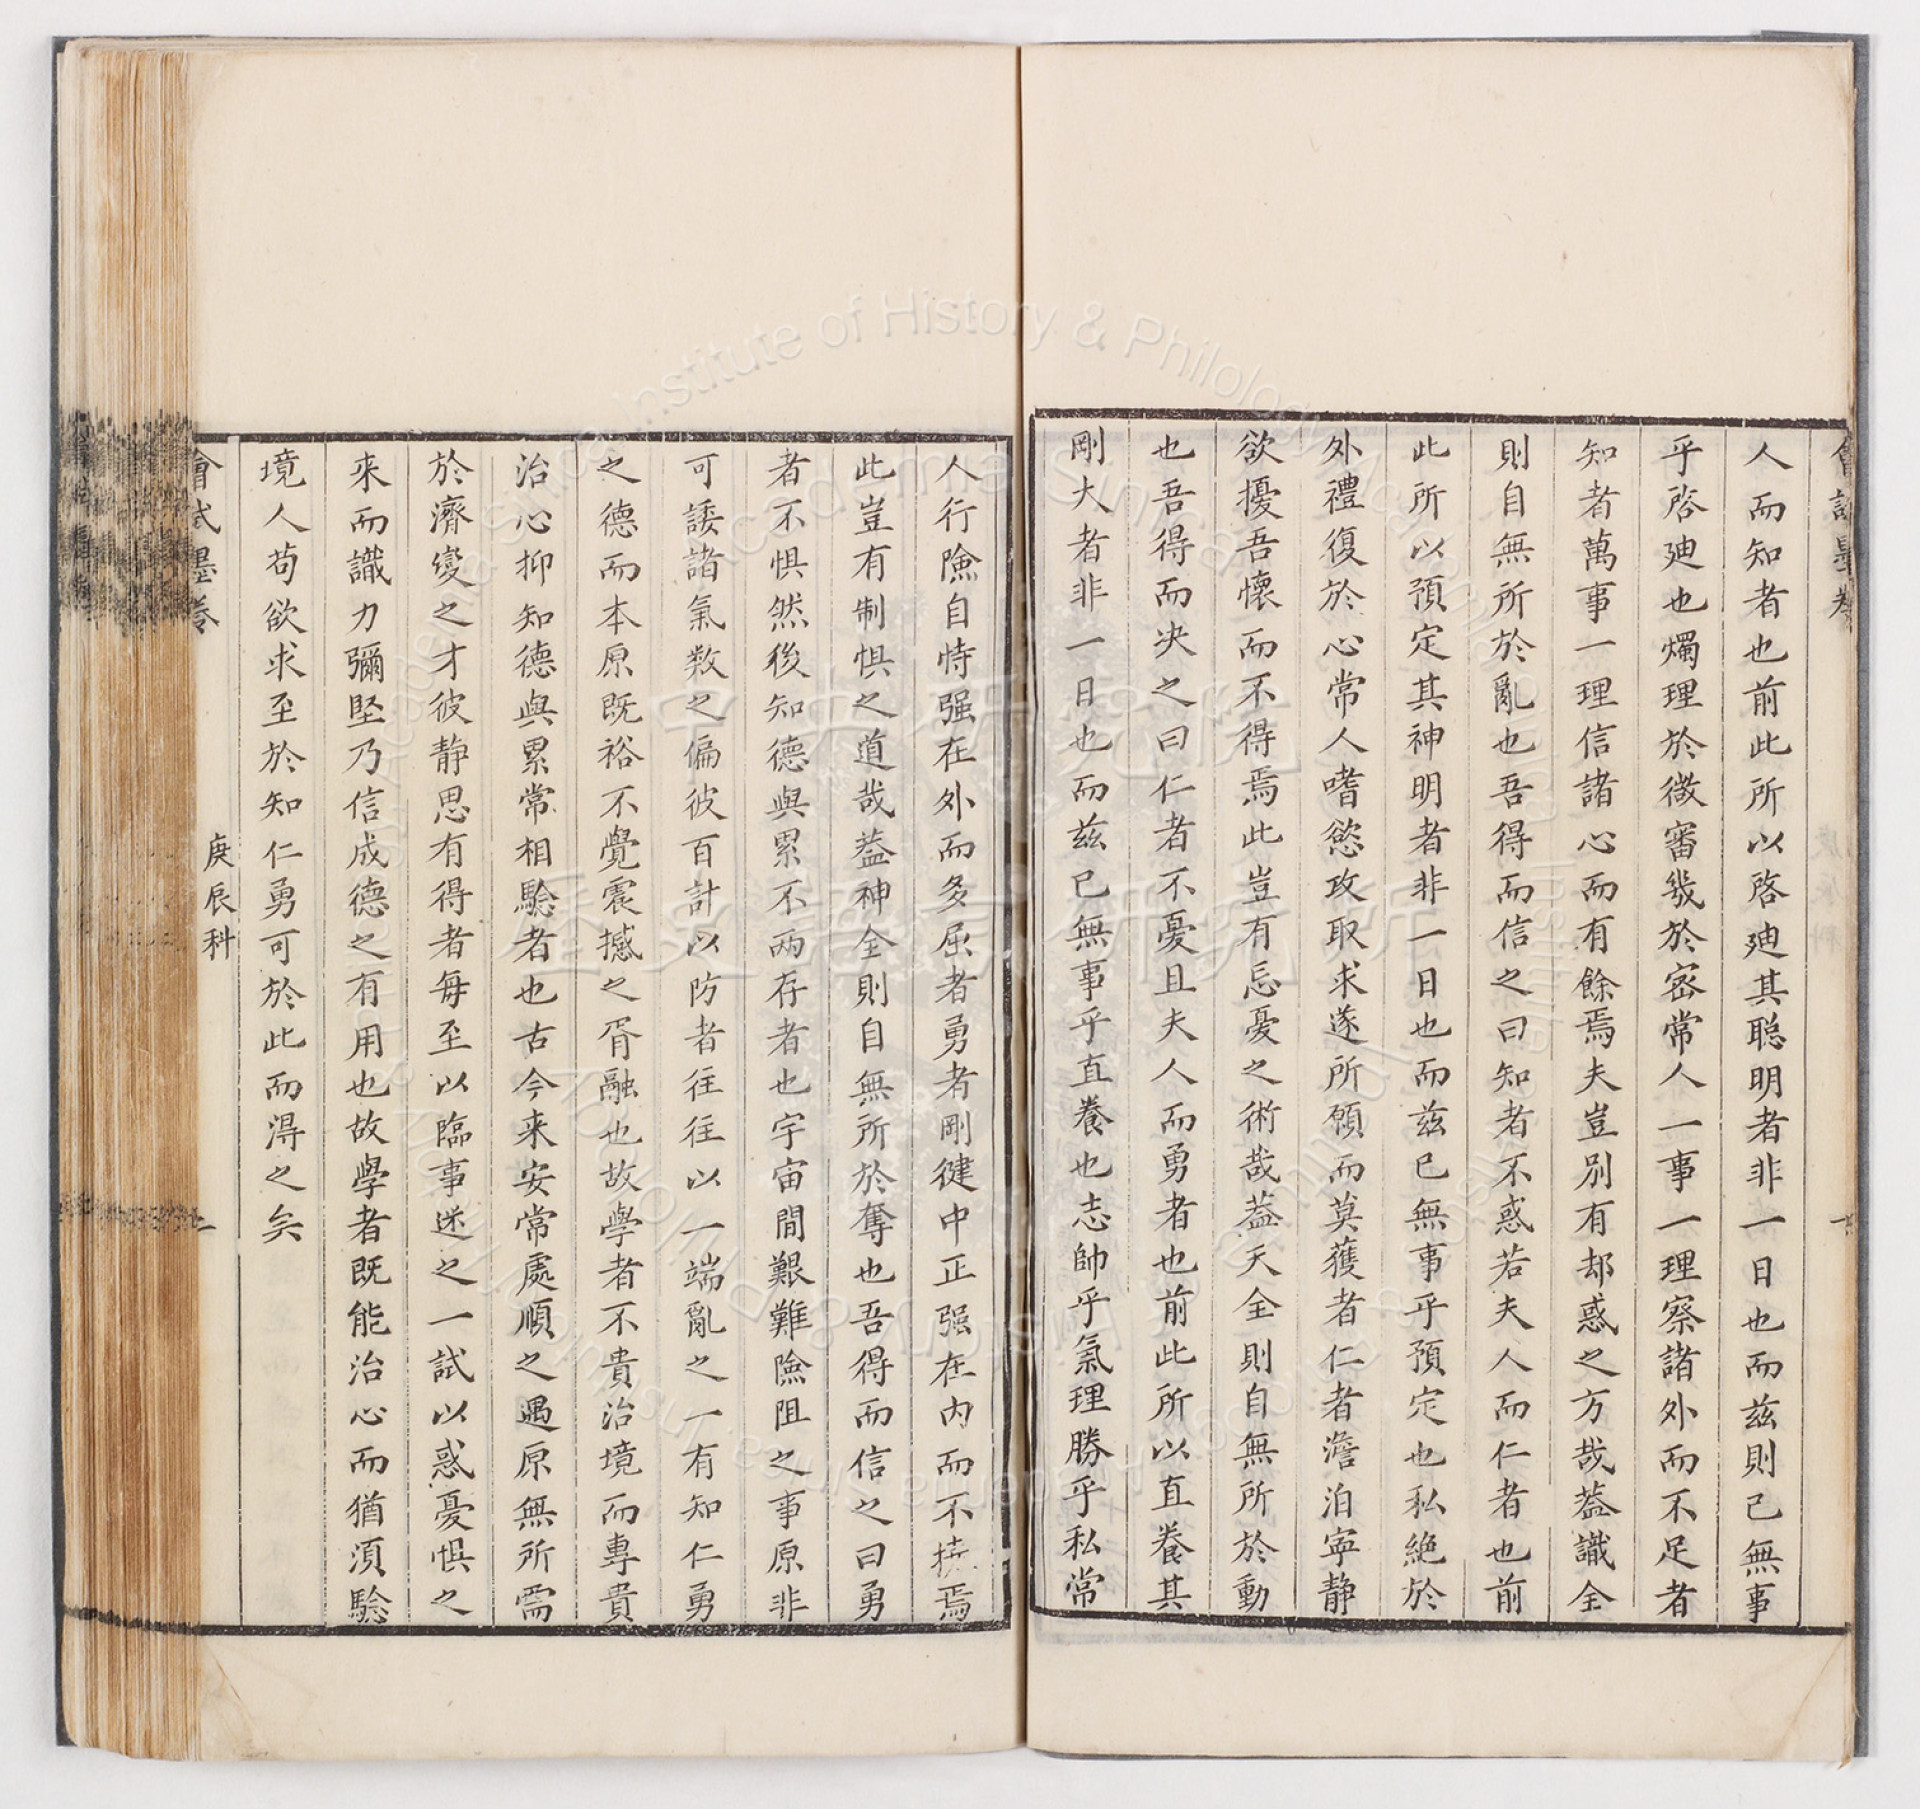 會試墨卷
人而知者也前此所以啓廸其聡明者非一日也而兹則已無事
乎啓廸也燭理於微審幾於宻常人一事一理察諸外而不足者
知者萬事一理信諸心而有餘焉夫豈別有却惑之方哉葢識全
則自無所於亂也吾得而信之曰知者不惑若夫人而仁者也前
此所以預定其神明者非一日也而兹已無事乎預定也私絶於
外禮復於心常人嗜慾攻取求遂所願而莫獲者仁者澹泊寜静
欲擾吾懷而不得焉此豈有忘憂之術哉葢天全則自無所於動
也吾得而决之曰仁者不憂且夫人而勇者也前此所以直養其
剛大者非一日也而兹已無事乎直養也志帥乎氣理勝乎私常
人行險自恃强在外而多屈者勇者剛健中正强在内而不撓焉
此豈有制惧之道哉葢神全則自無所於奪也吾得而信之曰勇
者不惧然後知德與累不两存者也宇宙間艱難險阻之事原非
可諉諸氣數之偏彼百計以防者往往以一端亂之一有知仁勇
之德而本原既裕不覺震撼之胥融也故學者不貴治境而專貴
治心抑知德與累常相驗者也古今来安常處順之遇原無所需
於濟變之才彼静思有得者每至以臨事迷之一試以惑憂惧之
来而識力彌堅乃信成德之有用也故學者既能治心而猶湏驗
境人茍欲求至於知仁勇可於此而淂之矣
會試墨卷
庚辰科